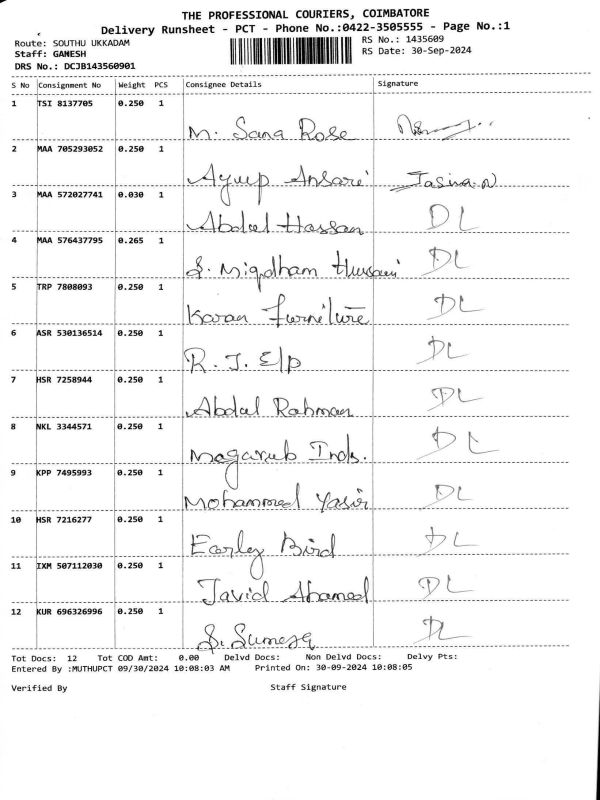 THE PROFESSIONAL COURIERS, COIMBATORE
Delivery Runsheet - PCT - Phone No.:0422-3505555 - Page No.:1
Route: SOUTHU UKKADAM RS No.: 1435609
Staff: GANESH RS Date: 30-Sep-2024
DRS No.: DCJB143560901
S No Consignment No Weight PCS Consignee Details Signature
1 TSI 8137705 0.250 1
M. Sana Rose
2 MAA 705293052 0.250 1
Ayup Ansari Jasina.N
3 MAA 572027741 0.030 1
Abdul Hassan DL
4 MAA 576437795 0.265 1
S. Miqdham Hussaini DL
5 TRP 7808093 0.250 1
Karan Furniture DL
6 ASR 530136514 0.250 1
R. J. E/p DL
7 HSR 7258944 0.250 1
Abdul Rahman DL
8 NKL 3344571 0.250 1
Inds. DL
9 KPP 7495993 0.250 1
Mohammed Yasir DL
10 HSR 7216277 0.250 1
Early Bird DL
11 IXM 507112030 0.250 1
Javid Ahamed DL
12 KUR 696326996 0.250 1
S. DL
Tot Docs: 12 Tot COD Amt: 0.00 Delvd Docs: Non Delvd Docs: Delvy Pts:
Entered By :MUTHUPCT 09/30/2024 10:08:03 AM Printed On: 30-09-2024 10:08:05
Verified By Staff Signature